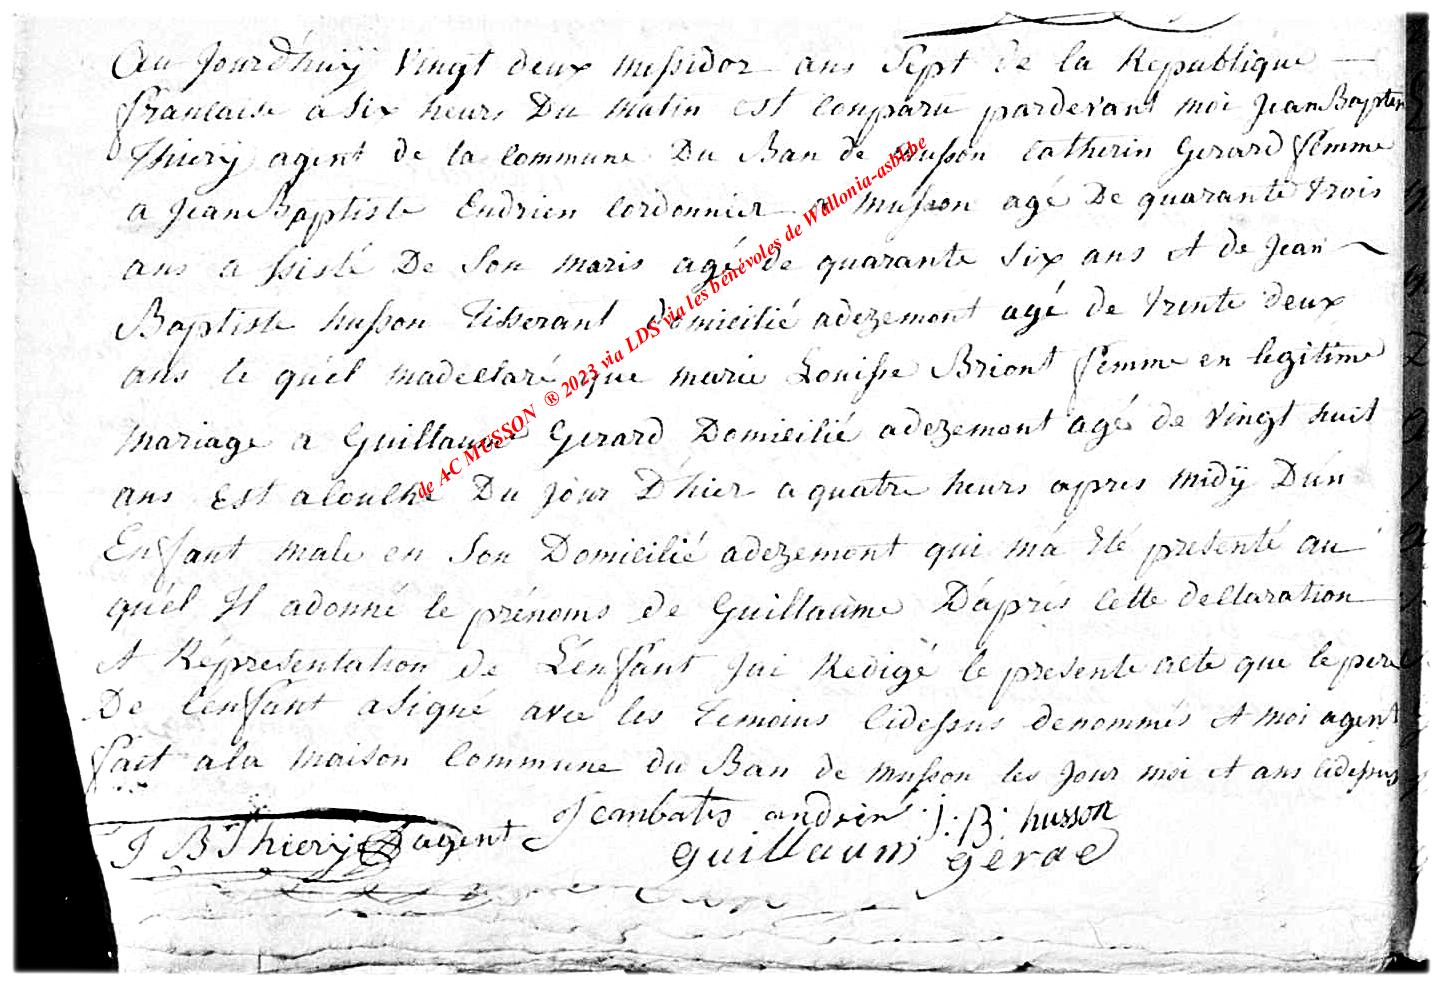 Au Jourd'huÿ vingt deux messidor ans sept de la Republique
francaise a six heurs Du matin est conparu pardevant moi Jean Baptiste
Thierÿ agent de la commune Du Ban de Musson catherin Gerard femme
a Jean Baptiste Endrien cordonnier a musson agé De quarante trois
ans a ssisté De Son maris agé de quarante Six ans et de Jean
Baptiste husson Tisserant Domicilié adezemont agé de trente deux
ans le quél madeclaré que marie Louisse Briont femme en legitime
mariage a Guillaume Gerard Domicilié adezemont agé de vingt huit
ans Est alouché Du jour D'hier a quatre heurs apres midÿ D'un
Enfant male en Son Domicilié adezemont qui m'a Eté presenté au
quél Il adonné le prénoms de Guillaume D'áprés cette declaration
et Répresentation de L'énfant Jai Redigé le presente acte que le pere
De l'enfant a Signé avec les temoins cidessus denommés et moi agent
fait ala maison commune du Ban de musson les Jour moi et ans cidessus
J B Thierÿ agent Jeanbatis andrien J: B: husson
guillaum gerad
de AC MUSSON ® 2023 via LDS via les bénévoles de Wallonia-asbl.be